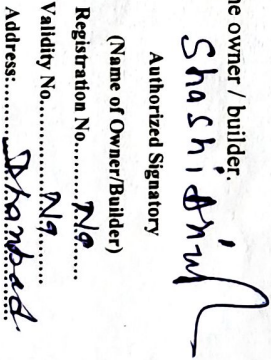 ne owner / builder.
Shashi
Authorized Signatory
(Name of Owner/Builder)
Registration No........No......
Validity No.........Na.......
Address:.......Dhanbad....